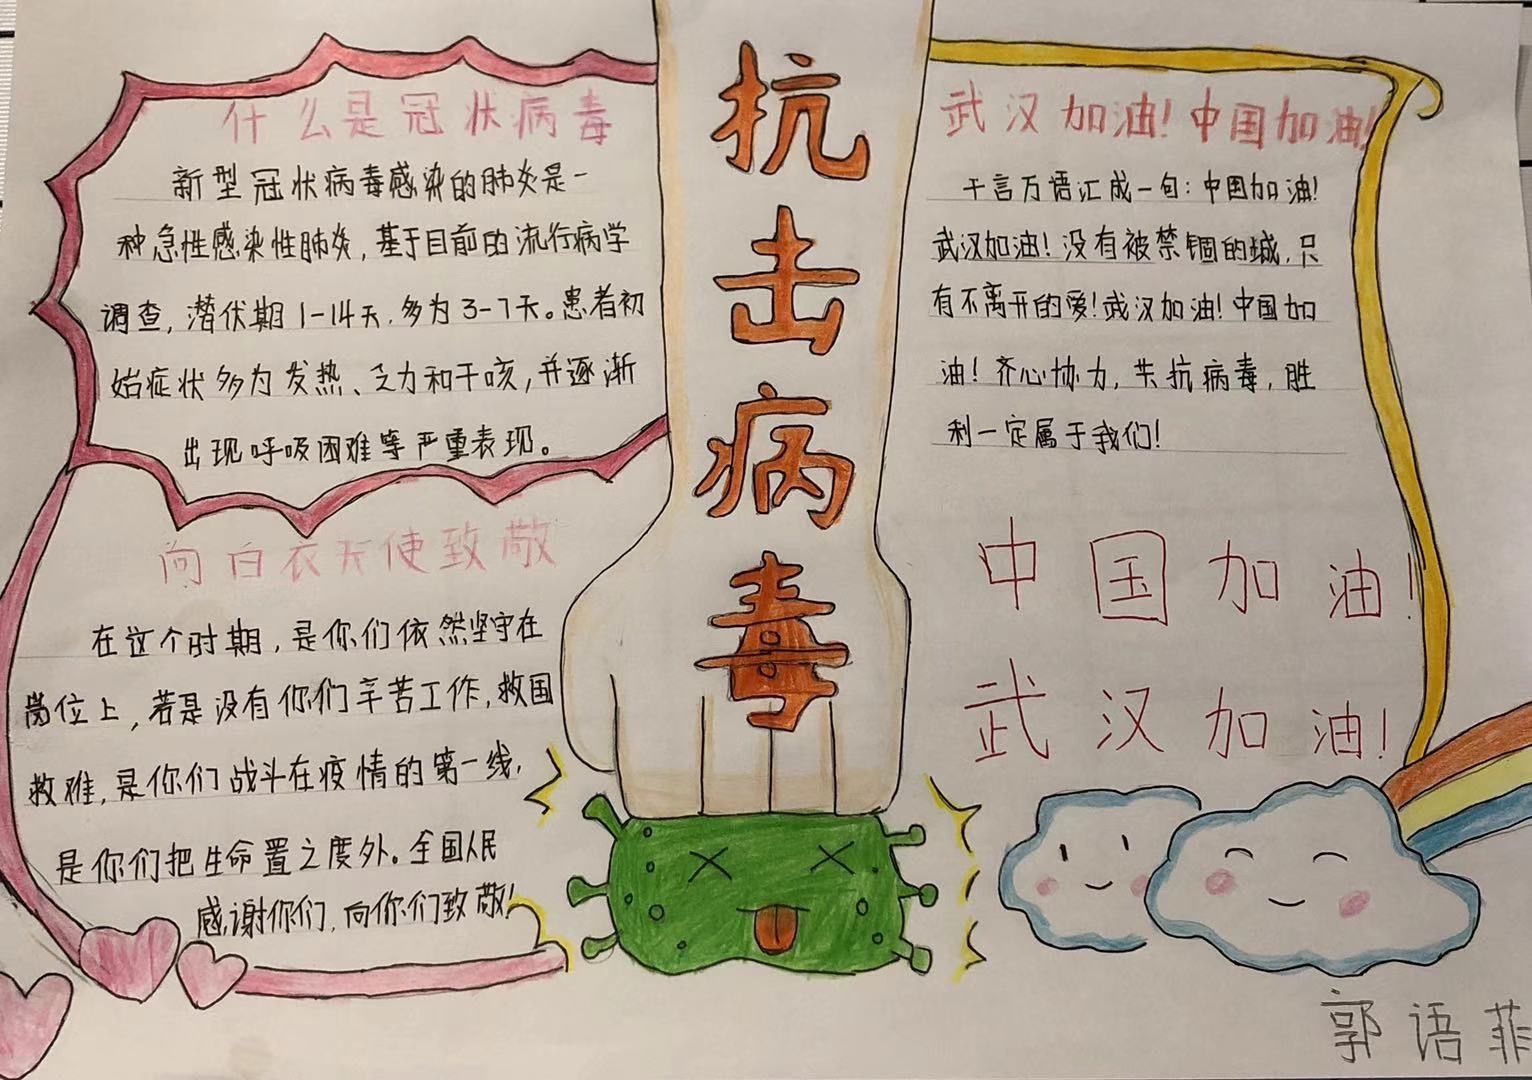 什么是冠状病毒
新型冠状病毒感染的肺炎是一
种急性感染性肺炎,基于目前的流行病学
调查,潜伏期1-14天,多为3-7天。患者初
始症状多为发热、乏力和干咳,并逐渐
出现呼吸困难等严重表现。
向白衣天使致敬
在这个时期,是你们依然坚守在
岗位上,若是没有你们辛苦工作,救国
救难,是你们战斗在疫情的第一线,
是你们把生命置之度外。全国人民
感谢你们,向你们致敬!
抗
击
病
毒
武汉加油!中国加油!
千言万语汇成一句:中国加油!
武汉加油!没有被禁锢的城,只
有不离开的爱!武汉加油!中国加
油!齐心协力,共抗病毒,胜
利一定属于我们!
中国加油!
武汉加油!
郭语菲